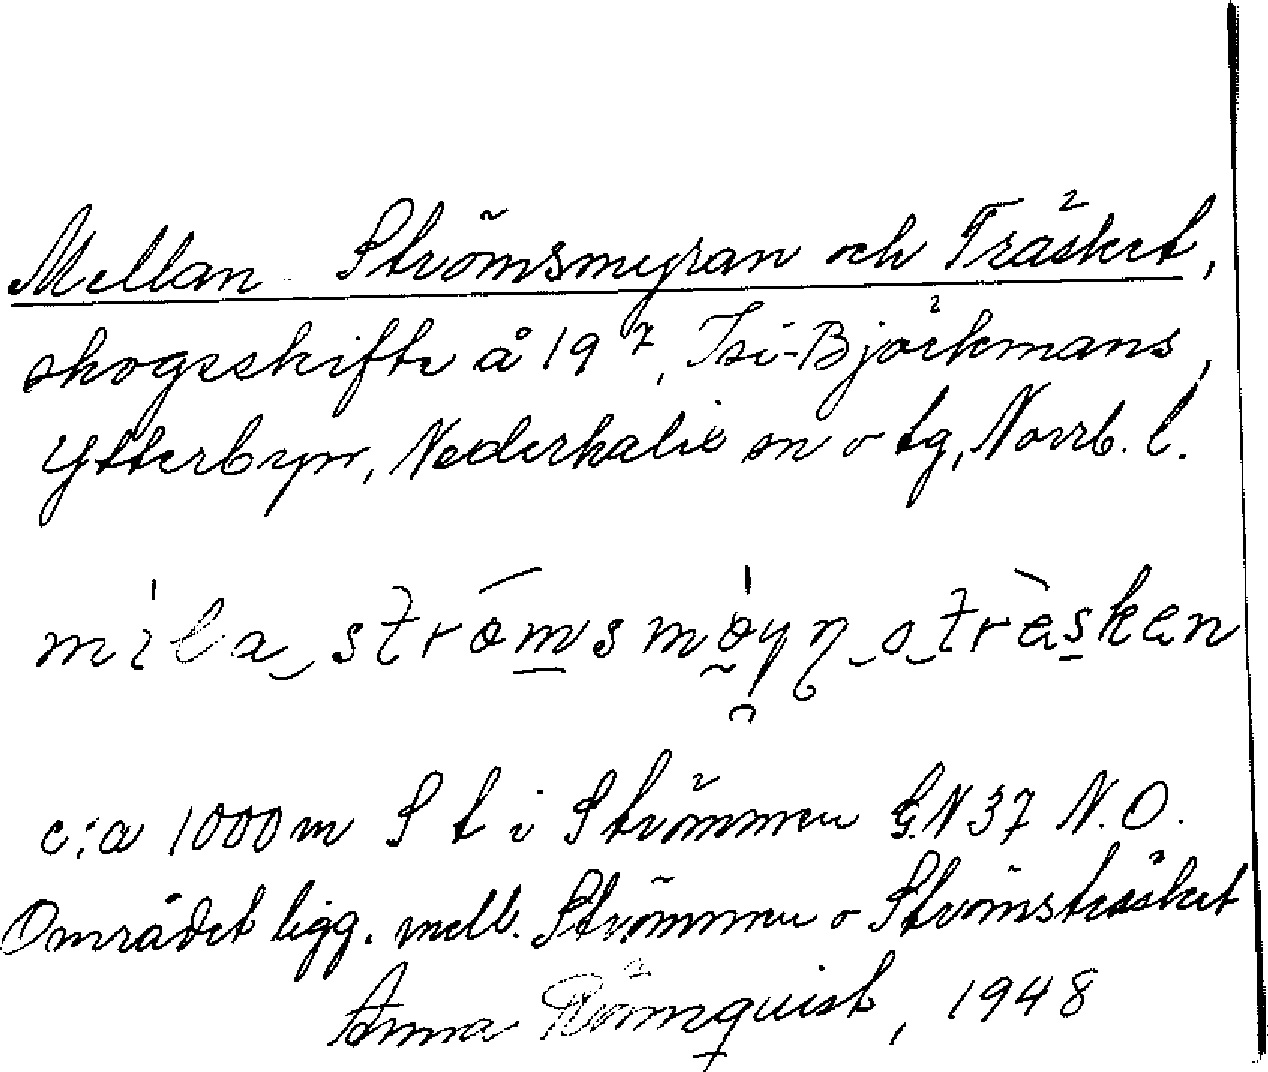 Mellan Strömsmyran och Träsket,
skogsskifte å 19⁷, Isi-Björkmans,
Ytterbyn, Nederkalix sn o tg, Norrb. l.
mìla strömsmöyn o träsken
c:a 1000 m S t i Strömmen G.N 37 N.O.
Området ligg. mell. Strömmen o Strömsträsket
Anna Rönnquist, 1948